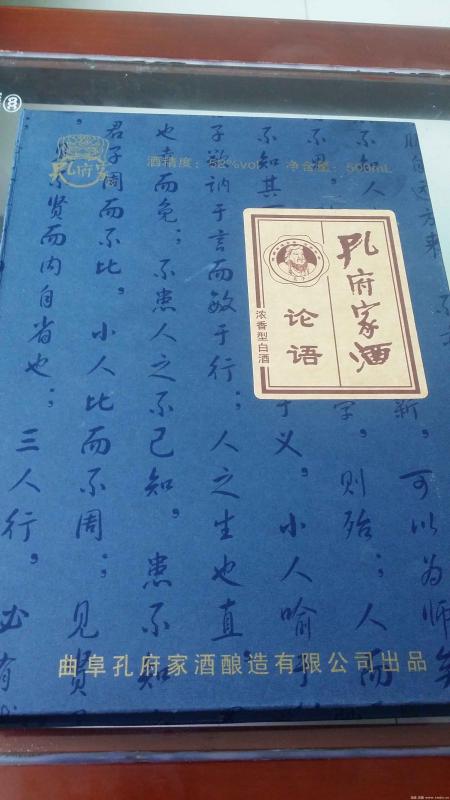 孔府家
酒精度： %vol 净含量：500mL
孔府家酒
论语
浓香型白酒
自远方来
新，可以为师矣
不知人
则殆；人而
不知其
于义，小人喻于
子欲讷于言而敏于行；人之生也直
也幸而免；不患人之不己知，患不知
君子周而不比，小人比而不周；见贤
不贤而内自省也；三人行，必有
曲阜孔府家酒酿造有限公司出品